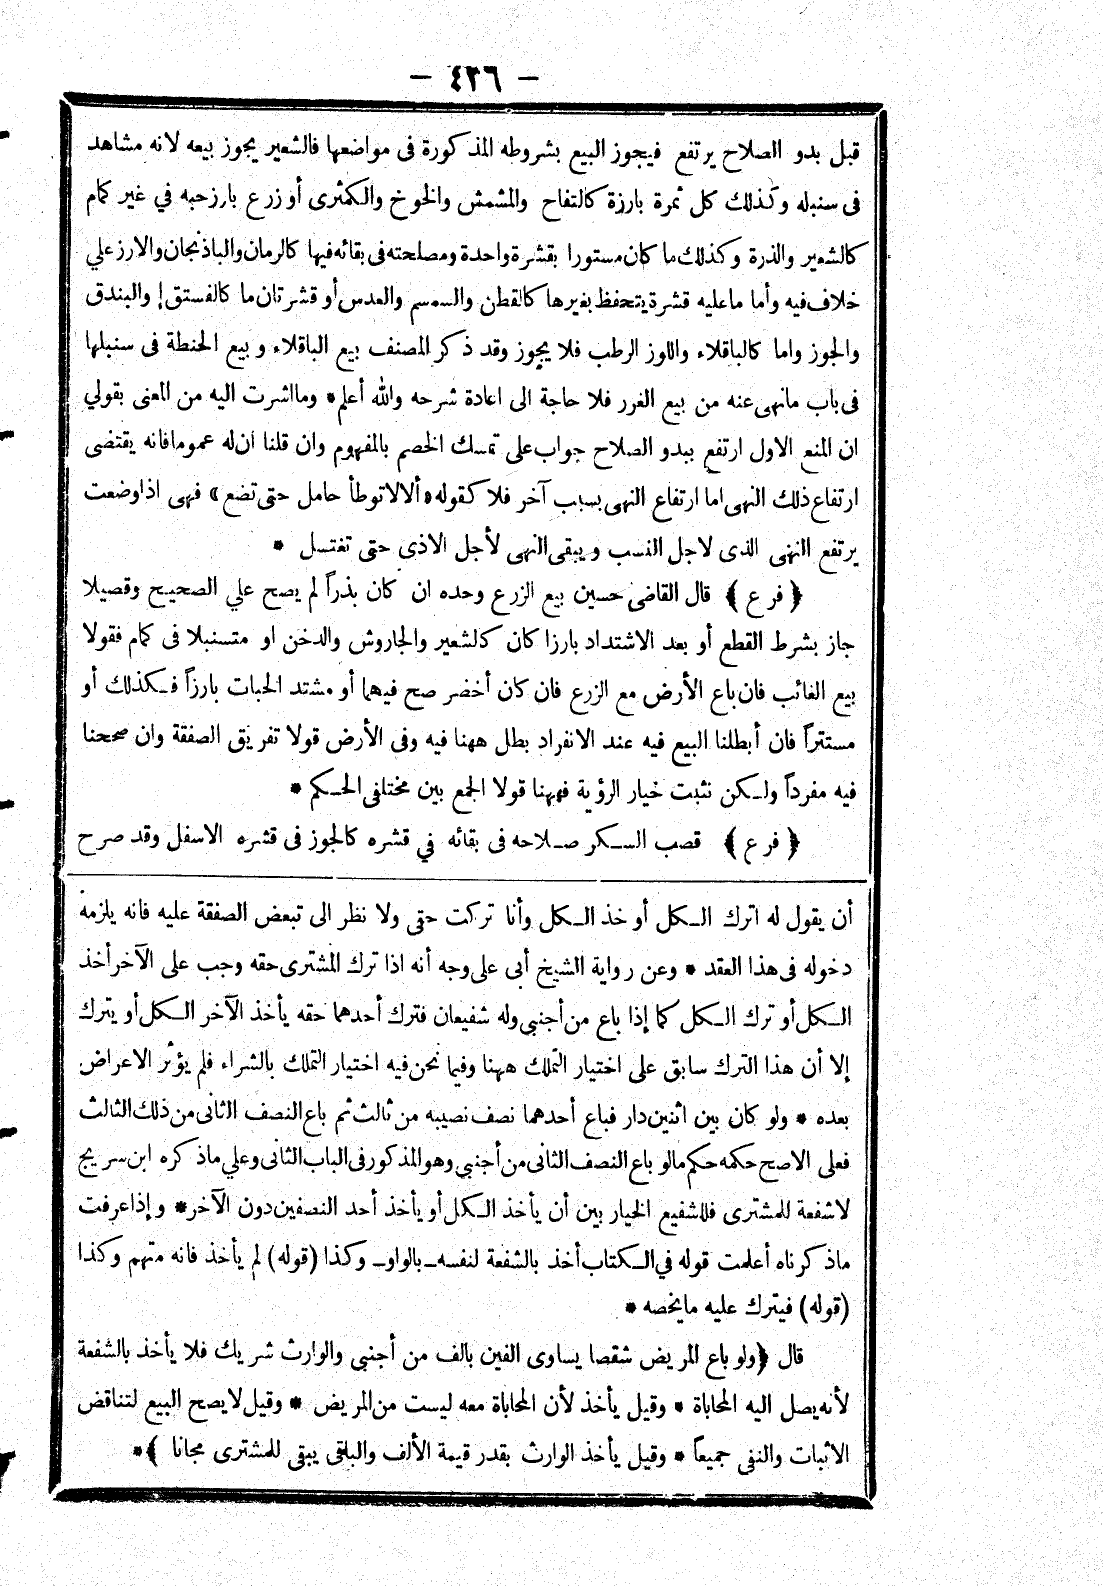 — ٤٢٦ —
قبل بدو الصلاح يرتفع فيجوز البيع بشروطه المذكورة فى مواضعها فالشعير يجوز بيعه لانه مشاهد
فى سنبله وكذلك كل ثمرة بارزة كالتفاح والمشمش والخوخ والكمثرى أو زرع بارز حبه في غير كمام
كالشعير والذرة وكذلك ما كان مستورا بقشرة واحدة ومصلحته فى بقائه فيها كالرمان والباذنجان والارز علي
خلاف فيه وأما ماعليه قشرة يتحفظ بغيرها كالقطن والسمسم والعدس أو قشرتان ما كالفستق إ والبندق
والجوز واما كالباقلاء واللوز الرطب فلا يجوز وقد ذكر المصنف بيع الباقلاء وبيع الحنطة فى سنبلها
فى باب مانهى عنه من بيع الغرر فلا حاجة الى اعادة شرحه والله أعلم * وما اشرت اليه من المعنى بقولي
ان المنع الاول ارتفع ببدو الصلاح جواب على تمسك الخصم بالمفهوم وان قلنا ان له عموما فانه يقتضى
ارتفاع ذلك النهى اما ارتفاع النهى بسبب آخر فلا كقوله « ألا لاتوطأ حامل حتى تضع » فهى اذا وضعت
يرتفع النهى الذى لاجل النسب ويبقى النهى لأجل الاذى حتى تغتسل *
﴿ فرع ﴾ قال القاضى حسين بيع الزرع وحده ان كان بذراً لم يصح علي الصحيح وقصيلا
جاز بشرط القطع أو بعد الاشتداد بارزا كان كالشعير والجاروش والدخن او متسنبلا فى كمام فقولا
بيع الغائب فان باع الأرض مع الزرع فان كان أخضر صح فيهما أو مشتد الحبات بارزاً فكذلك أو
مستتراً فان أبطلنا البيع فيه عند الانفراد بطل ههنا فيه وفى الأرض قولا تفريق الصفقة وان صححنا
فيه مفرداً ولكن نثبت خيار الرؤية فههنا قولا الجمع بين مختلفى الحكم *
﴿ فرع ﴾ قصب السكر صلاحه فى بقائه في قشره كالجوز فى قشره الاسفل وقد صرح
أن يقول له اترك الكل أو خذ الكل وأنا تركت حتى ولا نظر الى تبعض الصفقة عليه فانه يلزمه
دخوله فى هذا العقد * وعن رواية الشيخ أبى على وجه أنه اذا ترك المشترى حقه وجب على الآخر أخذ
الكل أو ترك الكل كما إذا باع من أجنبى وله شفيعان فترك أحدهما حقه يأخذ الآخر الكل أو يترك
إلا أن هذا الترك سابق على اختيار التملك ههنا وفيما نحن فيه اختيار التملك بالشراء فلم يؤثر الاعراض
بعده * ولو كان بين اثنين دار فباع أحدهما نصف نصيبه من ثالث ثم باع النصف الثانى من ذلك الثالث
فعلى الاصح حكمه حكم مالو باع النصف الثانى من أجنبي وهو المذكور فى الباب الثانى وعلي ماذكره ابن سريج
لا شفعة للمشترى فللشفيع الخيار بين أن يأخذ الكل أو يأخذ أحد النصفين دون الآخر * وإذا عرفت
ماذكرناه أعلمت قوله في الكتاب أخذ بالشفعة لنفسه ـ بالواو ـ وكذا (قوله) لم يأخذ فانه متهم وكذا
(قوله) فيترك عليه مايخصه *
قال ﴿ ولو باع المريض شقصا يساوى الفين بالف من أجنبي والوارث شريك فلا يأخذ بالشفعة
لأنه يصل اليه المحاباة * وقيل يأخذ لأن المحاباة معه ليست من المريض * وقيل لا يصح البيع لتناقض
الاثبات والنفى جميعاً * وقيل يأخذ الوارث بقدر قيمة الألف والباقى يبقى للمشترى مجانا ﴾ *